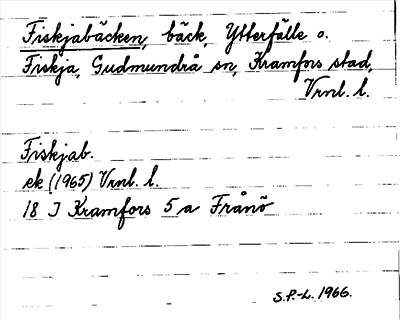 Fiskjabäcken, bäck, Ytterfälle o.
Fiskja, Gudmundrå sn, Kramfors stad,
Vrnl. l.
Fiskjab.
ek (1965) Vrnl. l.
18 J Kramfors 5 a Frånö
S.P.-L. 1966.